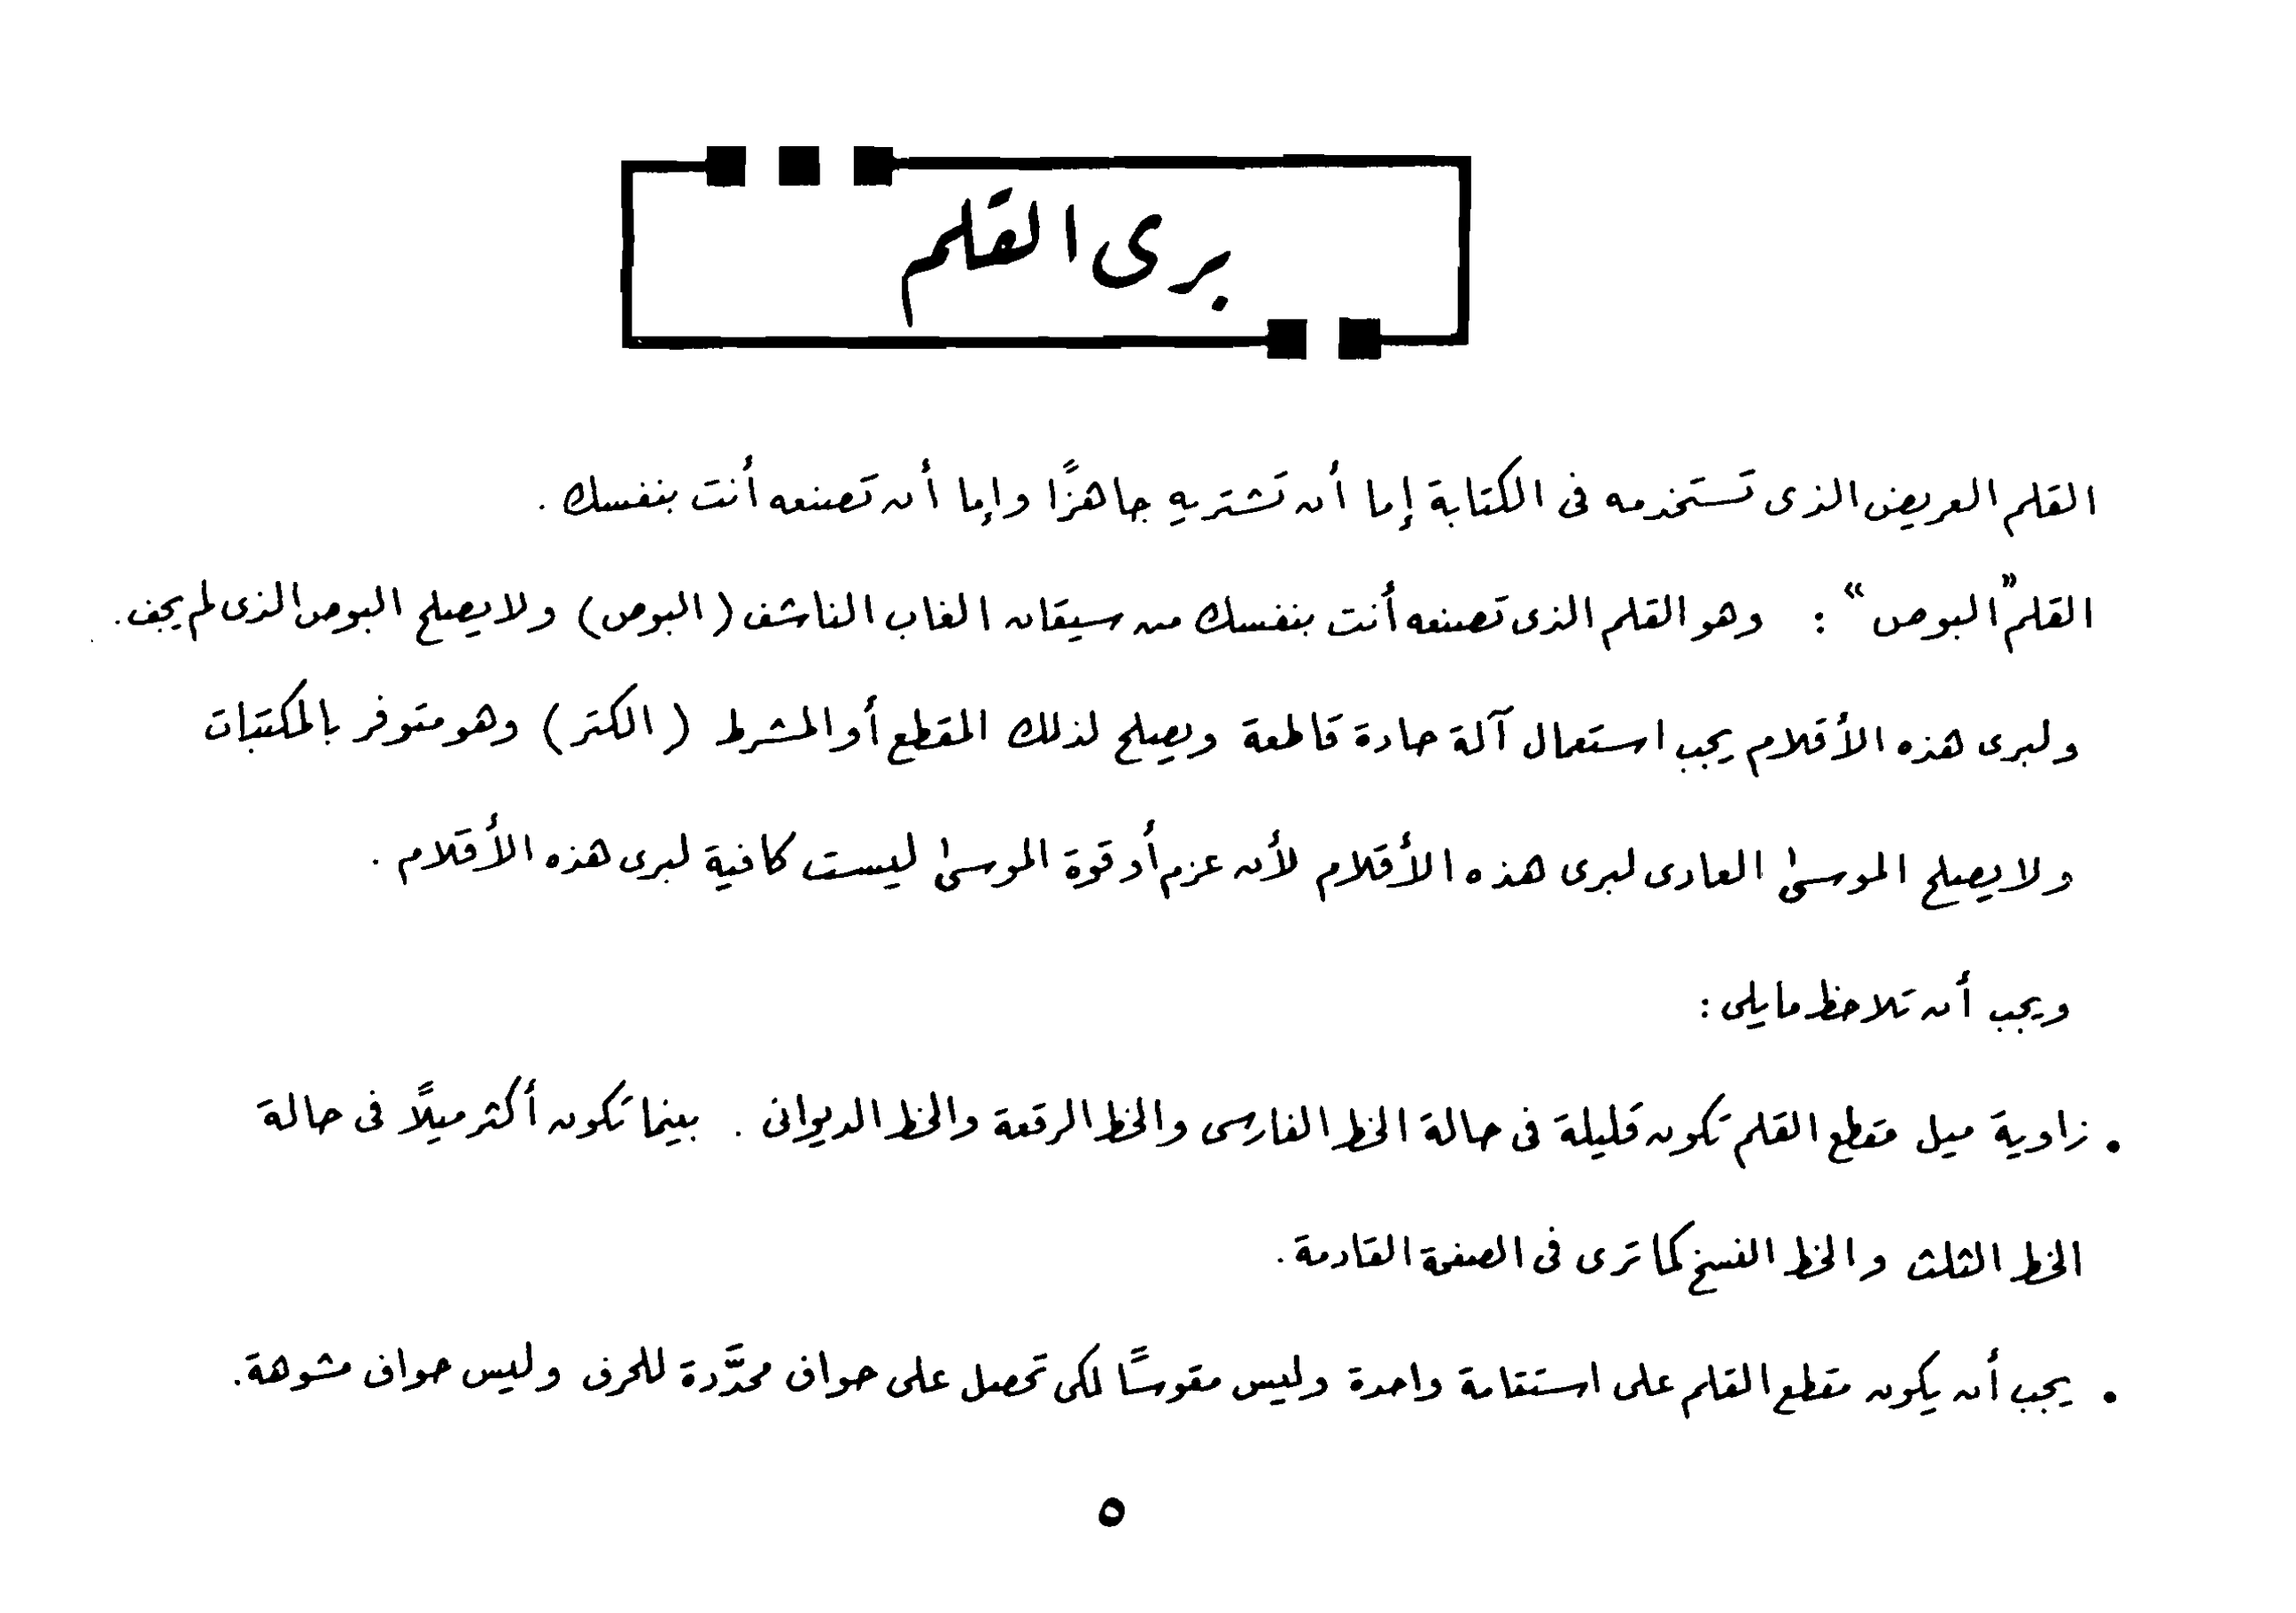 برى القلم
القلم العريض الذى تستخدمه فى الكتابة إما أن تشتريه جاهزًا وإما أن تصنعه أنت بنفسك .
القلم "البوص" : وهو القلم الذى تصنعه أنت بنفسك من سيقان الغاب الناشف (البوص) ولا يصلح البوص الذى لم يجف .
ولبرى هذه الأقلام يجب استعمال آلة حادة قاطعة ويصلح لذلك المقطع أو المشرط (الكتر) وهو متوفر بالمكتبات
ولا يصلح الموسى العادى لبرى هذه الأقلام لأن عزم أو قوة الموسى ليست كافية لبرى هذه الأقلام .
ويجب أن تلاحظ ما يلى :
• زاوية ميل مقطع القلم تكون قليلة فى حالة الخط الفارسى والخط الرقعة والخط الديوانى . بينما تكون أكثر ميلًا فى حالة
الخط الثلث والخط النسخ كما ترى فى الصفحة القادمة .
• يجب أن يكون مقطع القلم على استقامة واحدة وليس مقوسًا لكى تحصل على حواف محدَّدة للحرف وليس حواف مشوهة .
٥